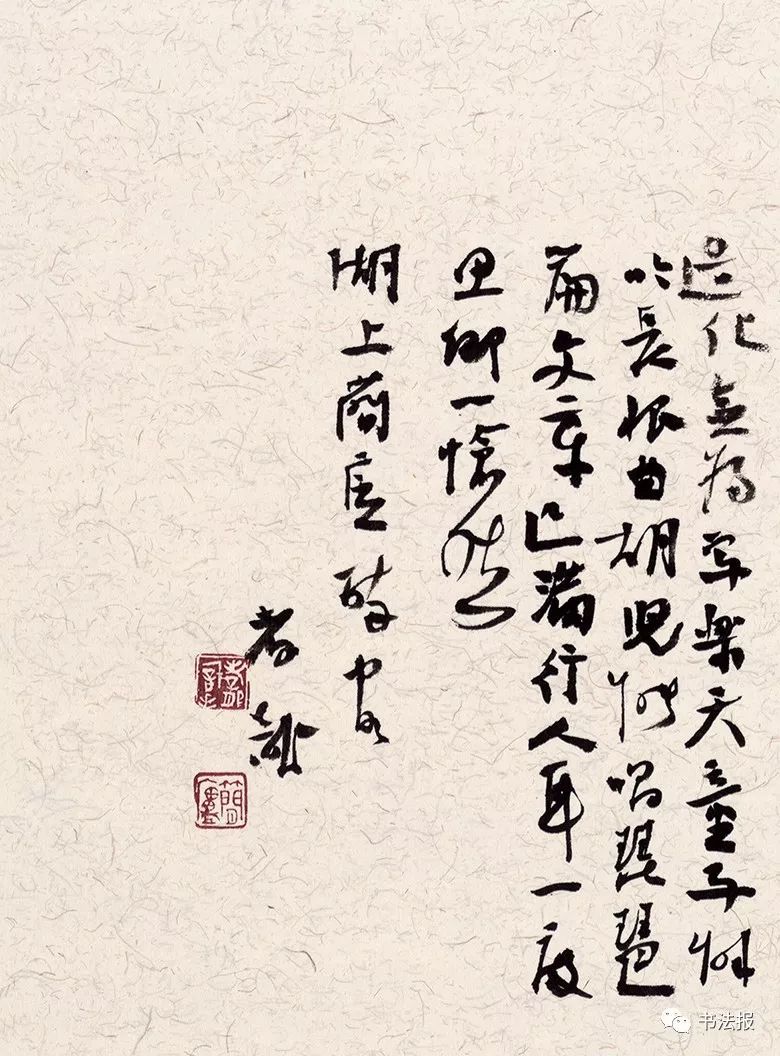 造化无为字乐天童子解
吟长恨曲胡儿能唱琵琶
篇文章已满行人耳一度
思卿一怆然
湖上简庐
孝
簡廬
书法报